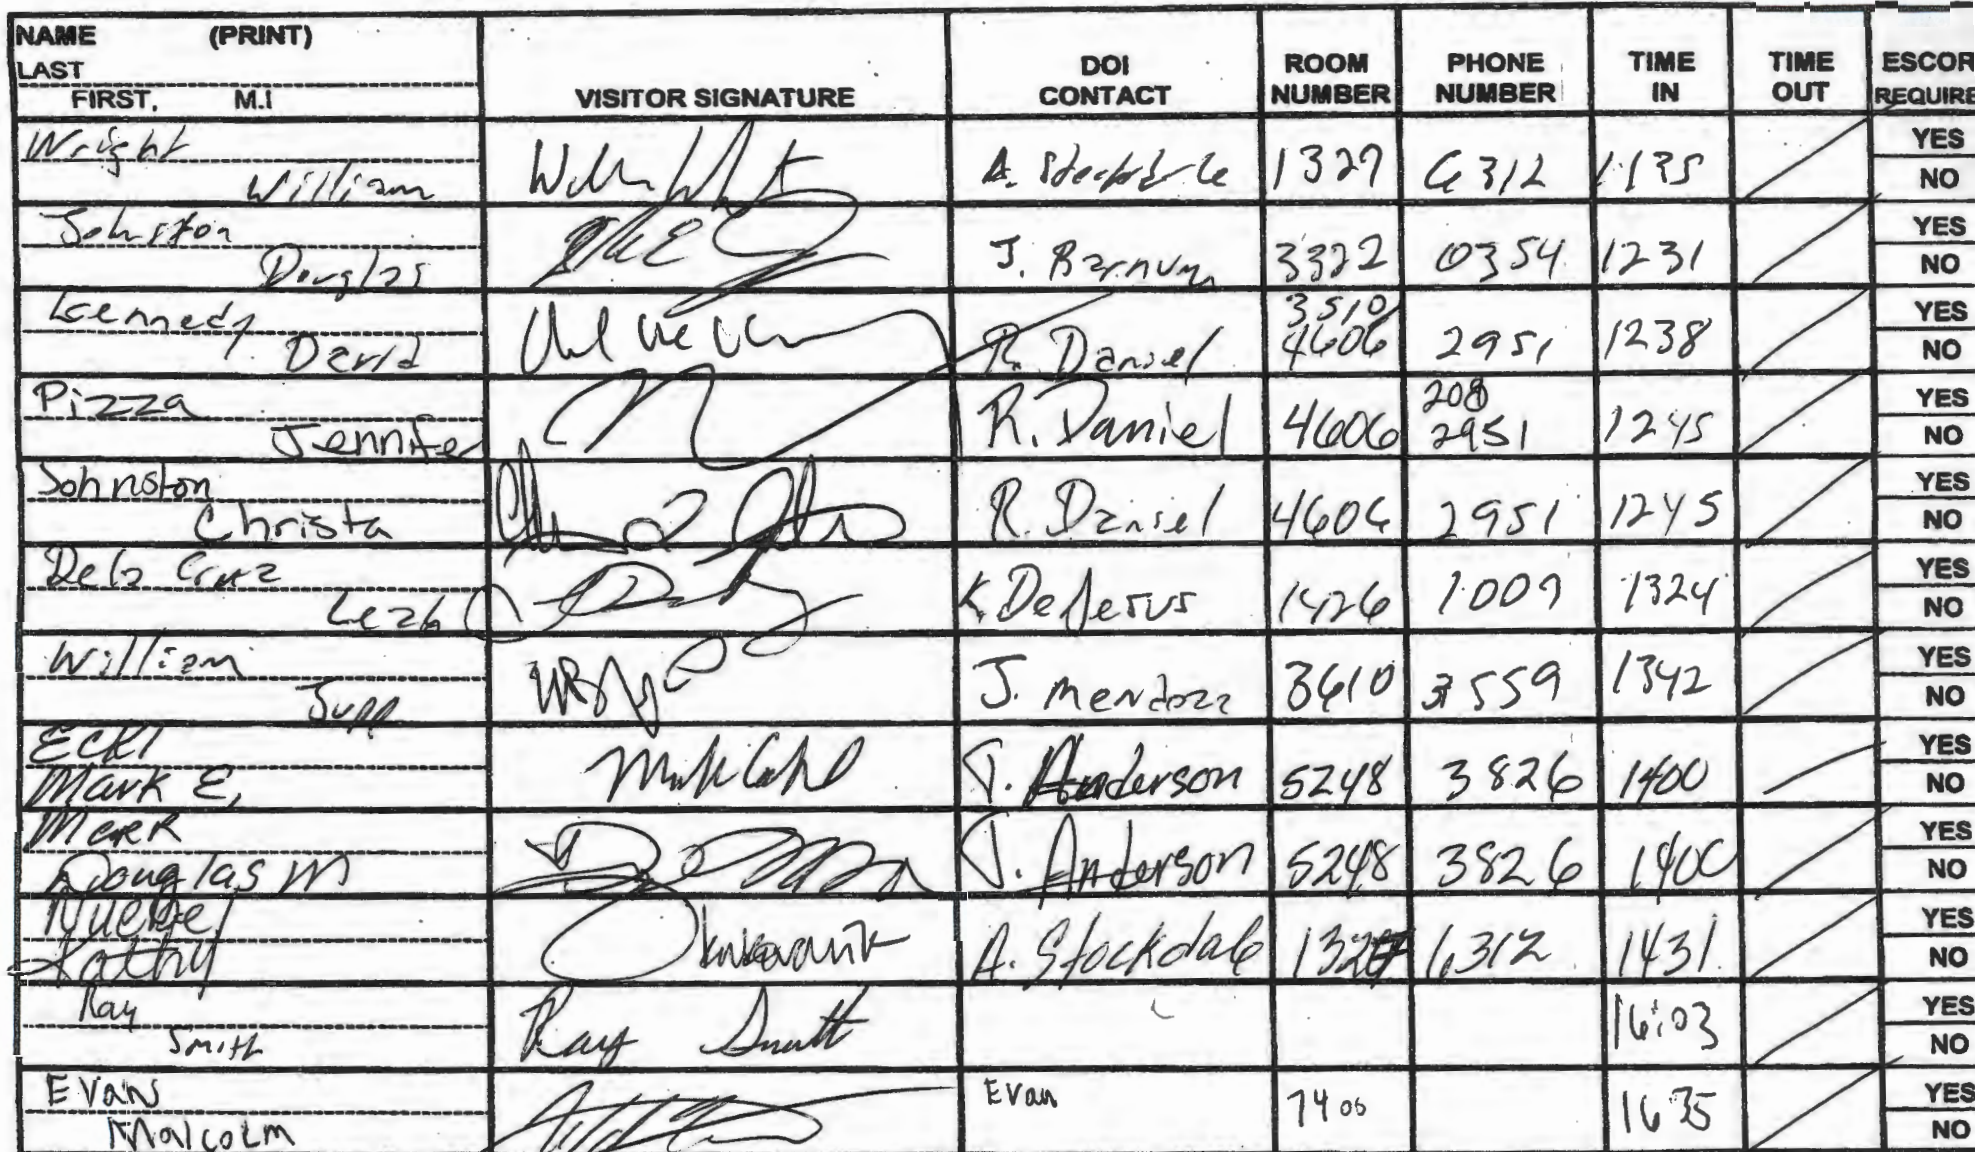 NAME (PRINT)
LAST
FIRST, M.I
VISITOR SIGNATURE
DOI CONTACT
ROOM NUMBER
PHONE NUMBER
TIME IN
TIME OUT
ESCOR
REQUIRE
Wright
William A. Stockdale 1327 6312 1135 YES NO
Johnston
Douglas J. Barnum 3322 0354 1231 YES NO
Kennedy 3510
David R. Daniel 4606 2951 1238 YES NO
Pizza 208
Jennifer R. Daniel 4606 2951 1245 YES NO
Johnston
Christa R. Daniel 4606 2951 1245 YES NO
Dela Cruz
Leah K. DeJesus 1426 1009 1324 YES NO
William
Jupp J. Mendoza 3610 3559 1342 YES NO
Eckl
Mark E, T. Anderson 5248 3826 1400 YES NO
Douglas M T. Anderson 5248 3826 1400 YES NO
Kathy A. Stockdale 1327 1431 YES NO
Ray
Smith Ray Smith 16:03 YES NO
Evans Evan
Malcolm 7400 1635 YES NO